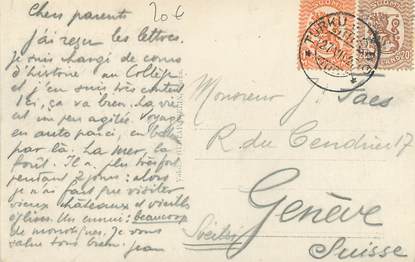 Chers parents
J'ai reçu les lettres.
Je suis chargé de cours
d'histoire au Collège
et j'en suis très content
Ici, ça va bien. La vie
est un peu agitée. Voyage
en auto par ci, en
par là. La mer, la
forêt. Il a plu très fort
pendant 2 jours: alors
je n'ai fait que visiter
vieux châteaux et vieilles
églises. Un ennui: beaucoup
de moustiques. Je vous
salue tous bien. Jean
20 €
TURKU
Monsieur J. Jaes
R. du Cendrier 17
Genève
Suisse